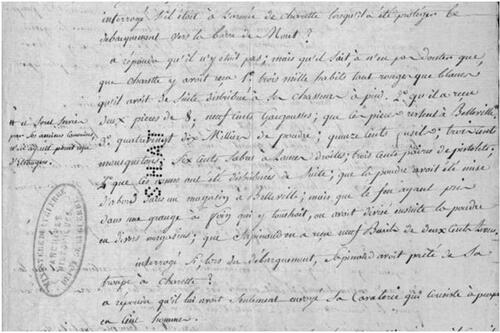 interrogé s'il étoit à l'armée de charette lorsqu'il a été protéger le
debarquement vers la barre de Mont ?
a repondu qu'il n'y etoit pas ; mais qu'il sait à n'en pas douter que
que charette y avoit reçu 1° trois mille habits tant rouges que blancs
qu'il avoit de suite distribué à ses chasseurs à pied. 2° qu'il a reçu
deux pièces de 8, neuf cents gargousses ; que les pieces restent à Belleville,
3° quatrevingt dix Milliers de poudre ; quinze cents fusils, trois cents
mousquetons, Six Cents Sabres à Lames droites ; trois cents paires de pistolets.
que les armes ont été distribuées de Suite ; que la poudre avoit été mise
d'abord dans un magasin à Belleville ; mais que le feu ayant pris
dans une grange à foin qui y touchoit, on avoit divisé ensuite la poudre
en divers magasins ; que Sapinaud en a reçu neuf Barils de deux Cents livres
interrogé Si, lors du debarquement, Sapinaud avoit prêté de Sa
troupe à charette ?
a repondu qu'il lui avoit Seulement envoyé Sa Cavalerie qui consiste à peu près
en Cent hommes.
S.H.A.T